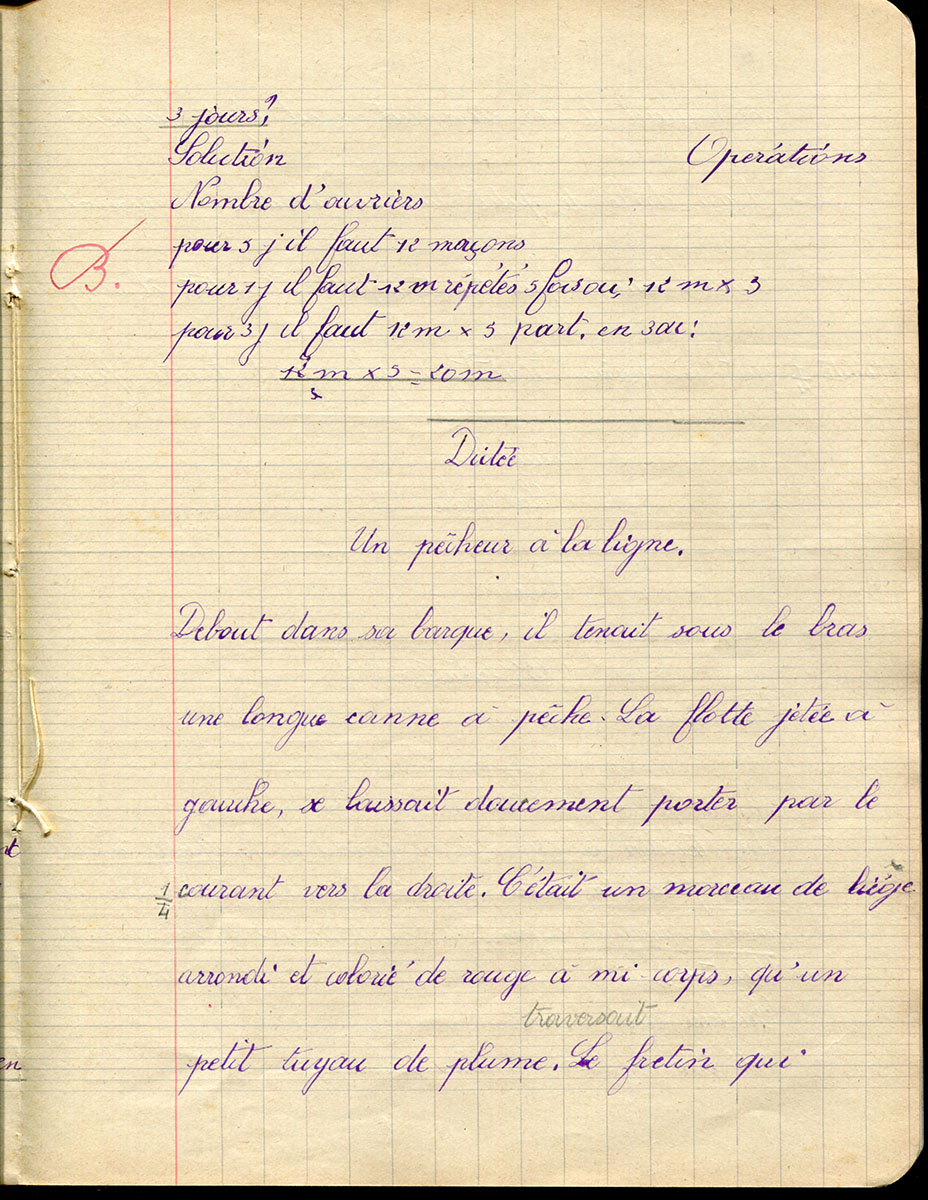 3 jours?
Solution Opérations
Nombre d'ouvriers
pour 5 j il faut 12 maçons
pour 1 j il faut 12 m répétés 5 fois ou; 12 m x 5
pour 3 j il faut 12 m x 5 part. en 3 ou:
B.
12 m x 5 = 20 m
3
Dictée
Un pêcheur à la ligne.
Debout dans sa barque, il tenait sous le bras
une longue canne à pêche. La flotte jetée à
gauche, se laissait doucement porter par le
1/4 courant vers la droite. C'était un morceau de liège
arrondi et colorié de rouge à mi corps, qu'un
traversait
petit tuyau de plume. Le fretin qui